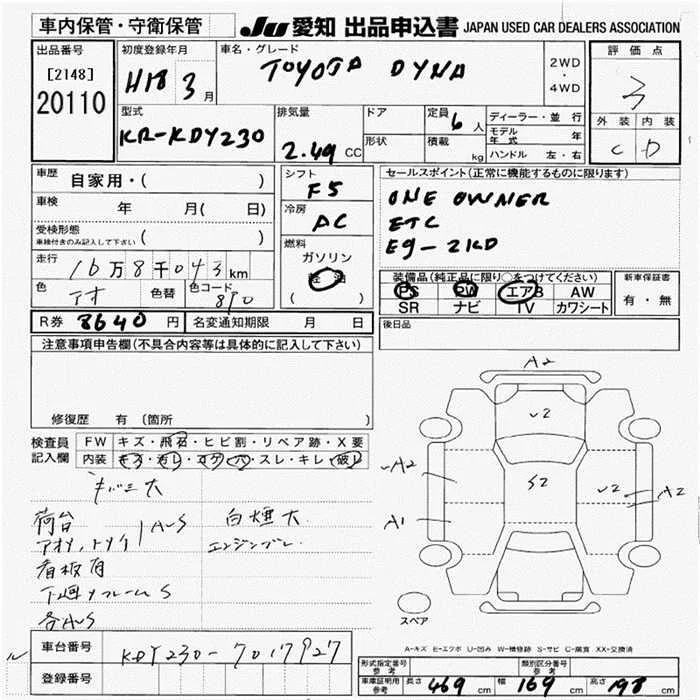 車内保管・守衛保管 JU 愛知 出品申込書 JAPAN USED CAR DEALERS ASSOCIATION
出品番号 初度登録年月 車名・グレード 2WD・4WD 評価点
[2148] H18 3月 TOYOTA DYNA 3
20110
型式 排気量 ドア 定員 6人 ディーラー・並行 外装 内装
KR-KDY230 2.49 CC 形状 積載 kg モデル年式 年 C D
ハンドル 左・右
車歴 自家用・( ) シフト F5 セールスポイント(正常に機能するものに限ります)
車検 年 月( 日) 冷房 AC ONE OWNER
受検形態 車検付きのみ記入して下さい ( ) ETC
燃料 ガソリン 軽油 ( ) Eg-2KD
走行 16万8千043km 装備品(純正品に限り○をつけてください) 新車保証書
色 アオ 色替 色コード 8P0 PS PW エアB AW 有・無
SR ナビ TV カワシート
R券 8640円 名変通知期限 月 日 後日品
注意事項申告欄(不具合内容等は具体的に記入して下さい)
修復歴 有(箇所
検査員記入欄 FW キズ・飛石・ヒビ割・リペア跡・X要
内装 キズ・汚れ・コゲ・穴・スレ・キレ・破れ
荷台 白煙大
AーS
看板有
下廻りフレームS
各AーS
A2
U2
S2
A2
A1
U2
A2
スペア
A-キズ E-エクボ U-凹み W-補修跡 S-サビ C-腐食 XX-交換済
車台番号 KDY230-7017927
登録番号
形式指定番号 参考 類別区分番号 参考
車庫証明用 参考 長さ 469 cm 幅 169 cm 高さ 198 cm